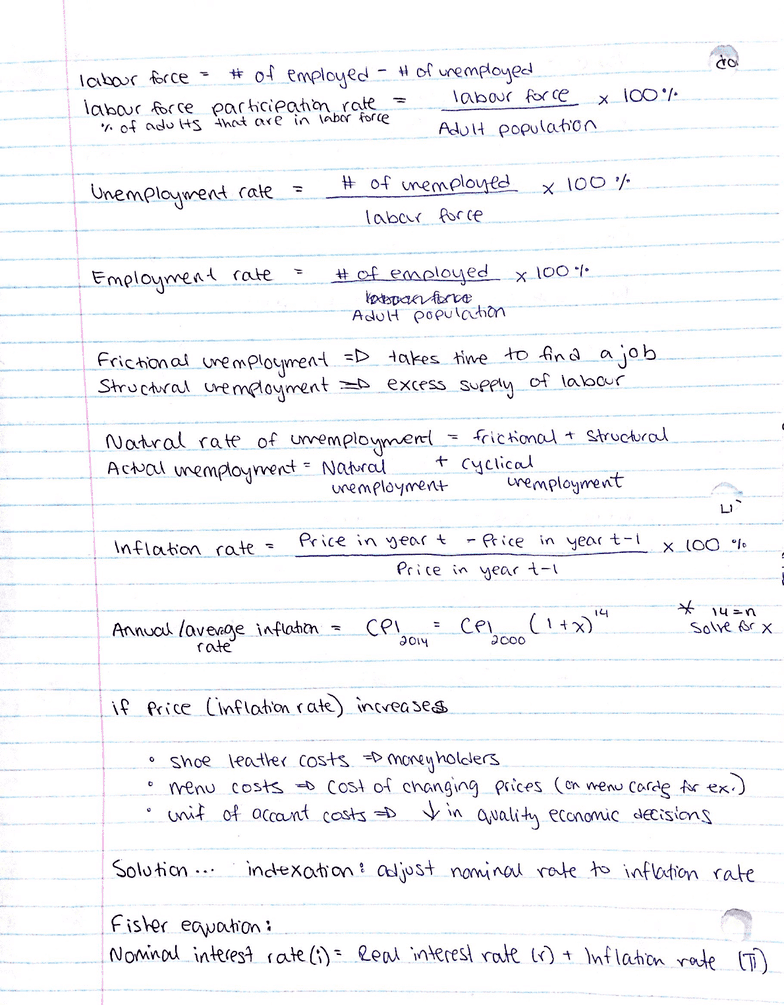 labour force = # of employed - # of unemployed
labour force participation rate = labour force / Adult population x 100%
% of adults that are in labor force
Unemployment rate = # of unemployed / labour force x 100 %
Employment rate = # of employed / Adult population x 100%
Frictional unemployment => takes time to find a job
Structural unemployment => excess supply of labour
Natural rate of unemployment = frictional + structural
Actual unemployment = Natural unemployment + cyclical unemployment
Inflation rate = Price in year t - Price in year t-1 / Price in year t-1 x 100 %
Annual/average inflation rate = CPI 2014 = CPI 2000 (1+x)^14
* 14=n
Solve for x
if Price (inflation rate) increases
• shoe leather costs => moneyholders
• menu costs => cost of changing prices (on menu cards for ex.)
• unit of account costs => ↓ in quality economic decisions
Solution... indexation: adjust nominal rate to inflation rate
Fisher equation:
Nominal interest rate (i) = Real interest rate (r) + Inflation rate (π)